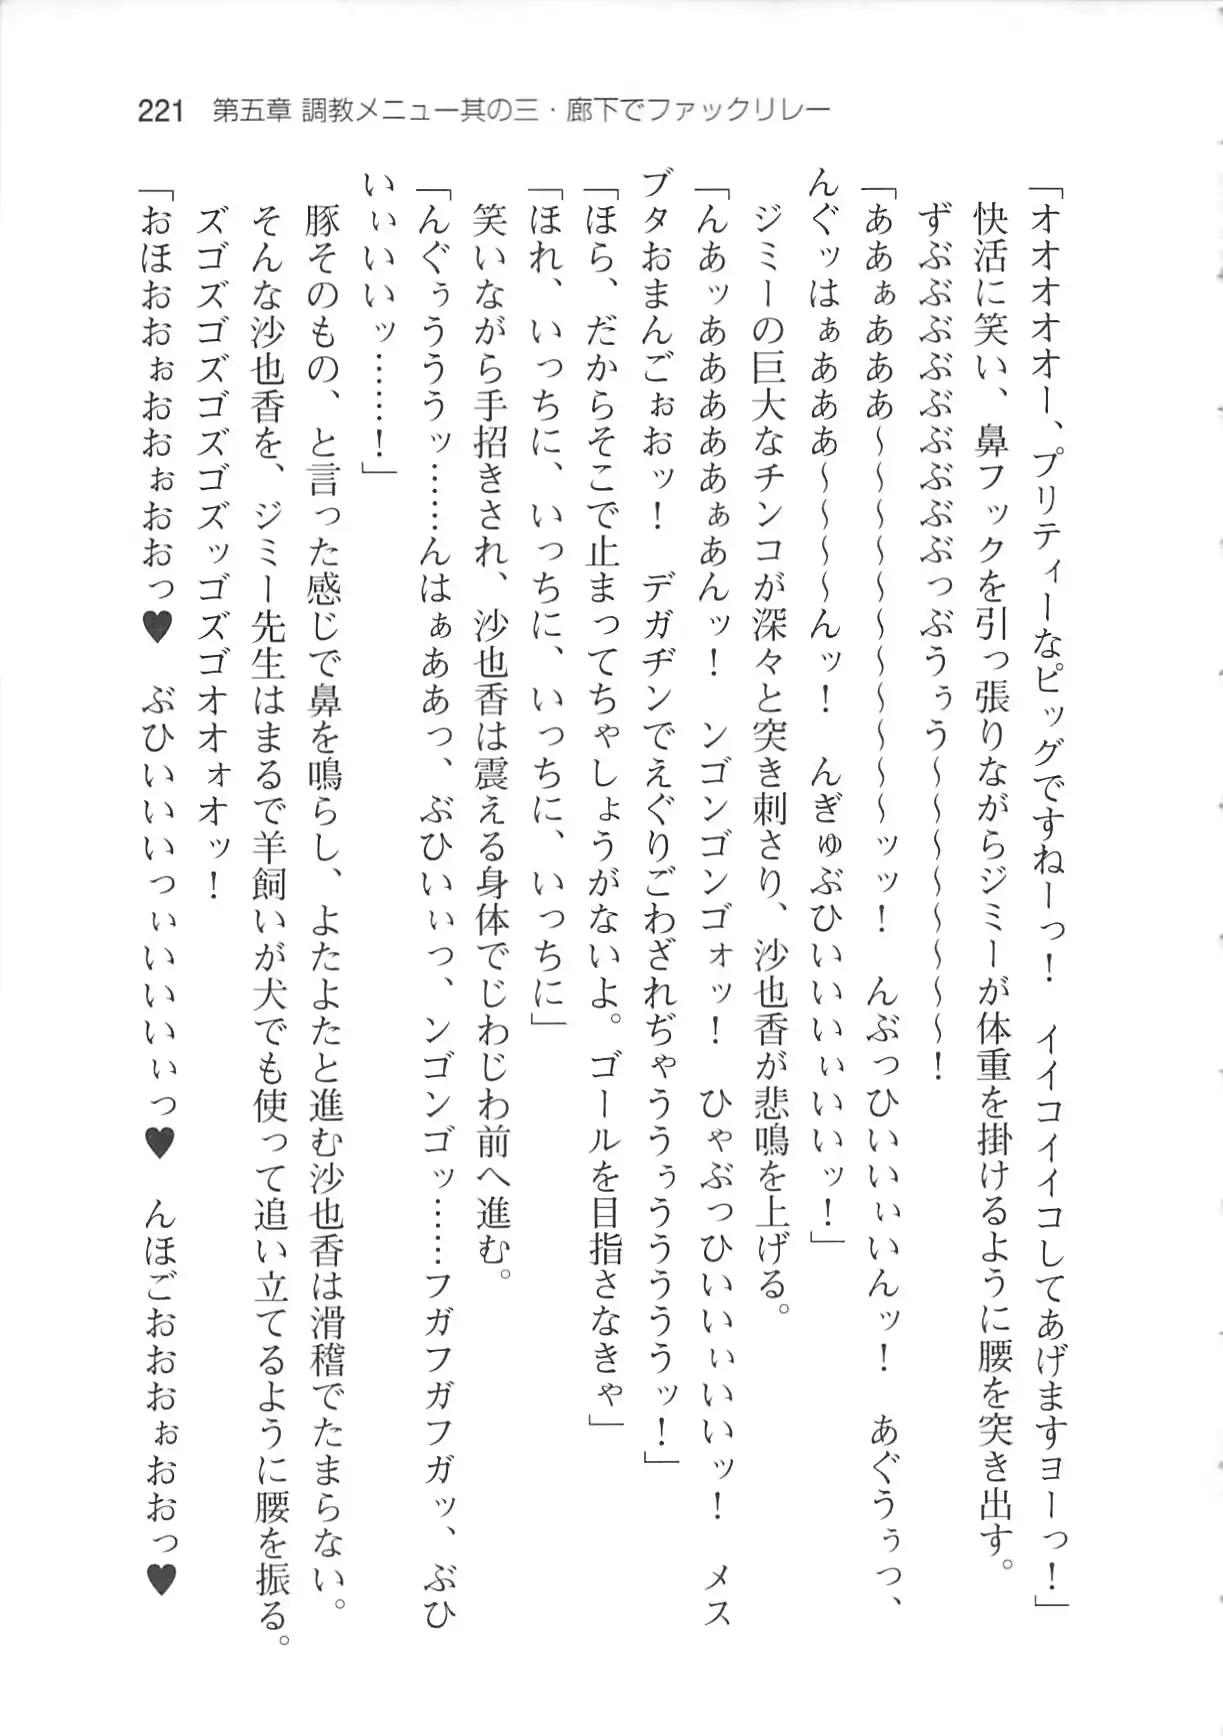 221 第五章 調教メニュー其の三・廊下でファックリレー
「オオオオオー、プリティーなピッグですねーっ！　イイコイイコしてあげますヨーっ！」
快活に笑い、鼻フックを引っ張りながらジミーが体重を掛けるように腰を突き出す。
ずぶぶぶぶぶぶぶぶっぶうぅう～～～～～～～～！
「ああぁあああ～～～～～～～～～～～ッッ！　んぶっひいいいぃいんッ！　あぐうぅっ、
んぐッはぁあああ～～～～んッ！　んぎゅぶひいいいぃいいッ！」
ジミーの巨大なチンコが深々と突き刺さり、沙也香が悲鳴を上げる。
「んあッああああああぁあんッ！　ンゴンゴンゴォッ！　ひゃぶっひいいぃいいッ！　メス
ブタおまんごぉおッ！　デガヂンでえぐりごわざれぢゃううぅうううううッ！」
「ほら、だからそこで止まってちゃしょうがないよ。ゴールを目指さなきゃ」
「ほれ、いっちに、いっちに、いっちに、いっちに」
笑いながら手招きされ、沙也香は震える身体でじわじわ前へ進む。
「んぐぅううぅッ……んはぁああっ、ぶひいぃっ、ンゴンゴッ……フガフガフガッ、ぶひ
いぃいいいッ……！」
豚そのもの、と言った感じで鼻を鳴らし、よたよたと進む沙也香は滑稽でたまらない。
そんな沙也香を、ジミー先生はまるで羊飼いが犬でも使って追い立てるように腰を振る。
ズゴズゴズゴズゴズッゴズゴオオォオッ！
「おほおおぉおおぉおおっ♥　ぶひいいいっぃいいいぃっ♥　んほごおおおぉおおっ♥